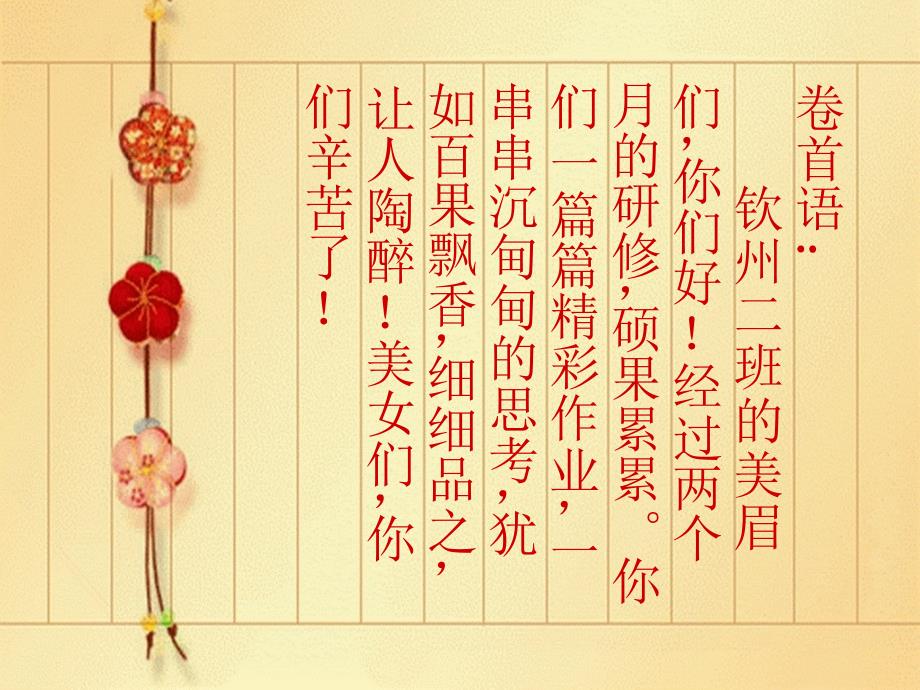 卷首语:
钦州二班的美眉
们,你们好!经过两个
月的研修,硕果累累。你
们一篇篇精彩作业,一
串串沉甸甸的思考,犹
如百果飘香,细细品之,
让人陶醉!美女们,你
们辛苦了!